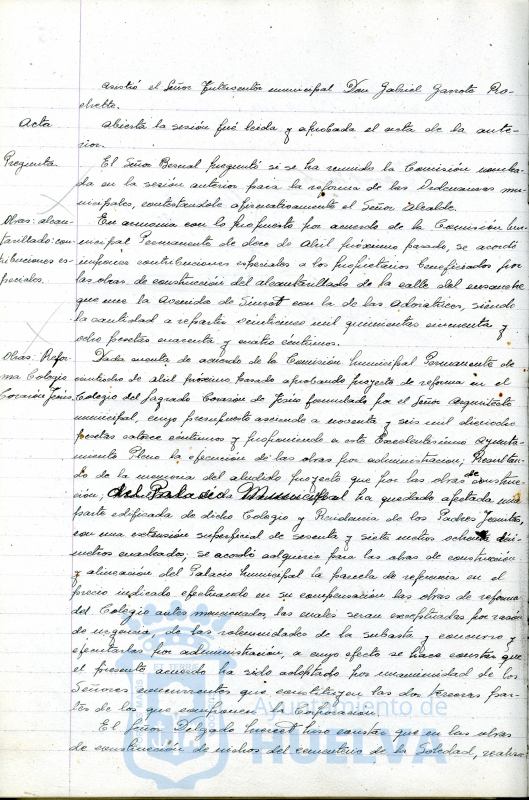 asistió el Señor Interventor municipal Don Gabriel Garrote Ro-
chette.
Acta
Abierta la sesión fué leida y aprobada el acta de la ante-
rior.
Pregunta.
El Señor Bernal preguntó si se ha reunido la Comisión nombra-
da en la sesión anterior para la reforma de las Ordenanzas mu-
nicipales, contestandole afirmativamente el Señor Alcalde.
Obras: alcan-
tarillado: con-
tribuciones es-
peciales.
En armonia con lo propuesto por acuerdo de la Comisión Mu-
nicipal Permanente de doce de Abril próximo pasado, se acordó
imponer contribuciones especiales a los propietarios beneficiados por
las obras de construcción del alcantarillado de la calle del ensanche
que une la Avenida de con la de las Adoratrices, siendo
la cantidad a repartir veinticinco mil quinientas cincuenta y
ocho pesetas cuarenta y cuatro centimos.
Obras: Refor-
ma Colegio
Corazón Jesús.
Dada cuenta de acuerdo de la Comisión Municipal Permanente de
de Abril próximo pasado aprobando proyecto de reforma en el
Colegio del Sagrado Corazon de Jesús formulado por el Señor Arquitecto
municipal, cuyo presupuesto asciende a noventa y seis mil
pesetas catorce centimos y proponiendo a este Excelentisimo Ayunta-
miento Pleno la ejecución de las obras por administracion; Resultan-
do de la memoria del aludido proyecto que por las obras de construc-
ción, del Palacio Municipal ha quedado afectada una
parte edificada de dicho Colegio y Residencia de los Padres Jesuitas
con una extensión superficial de sesenta y siete metros
metros cuadrados; se acordó adquirir para las obras de construcción
y alineacion del Palacio Municipal la parcela de referencia en el
precio indicado efectuando en su compensación las obras de reforma
del Colegio antes mencionadas, las cuales seran exceptuadas por razón
de urgencia, de las solemnidades de la subasta y concurso y
ejecutarlas por administración, a cuyo efecto se hace constar que
el presente acuerdo ha sido adoptado por unanimidad de los
Señores concurrentes que constituyen las dos terceras par-
tes de los que componen la Corporación.
El Señor Delgado hizo constar que en las obras
de construcción de nichos del cementerio de la Soledad, realiza-
Ayuntamiento de
HUELVA